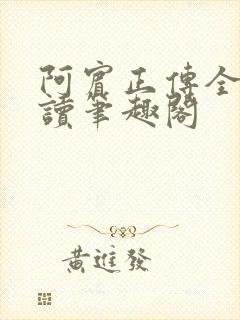 阿賓正傳全
讀筆趣閣
黃進發